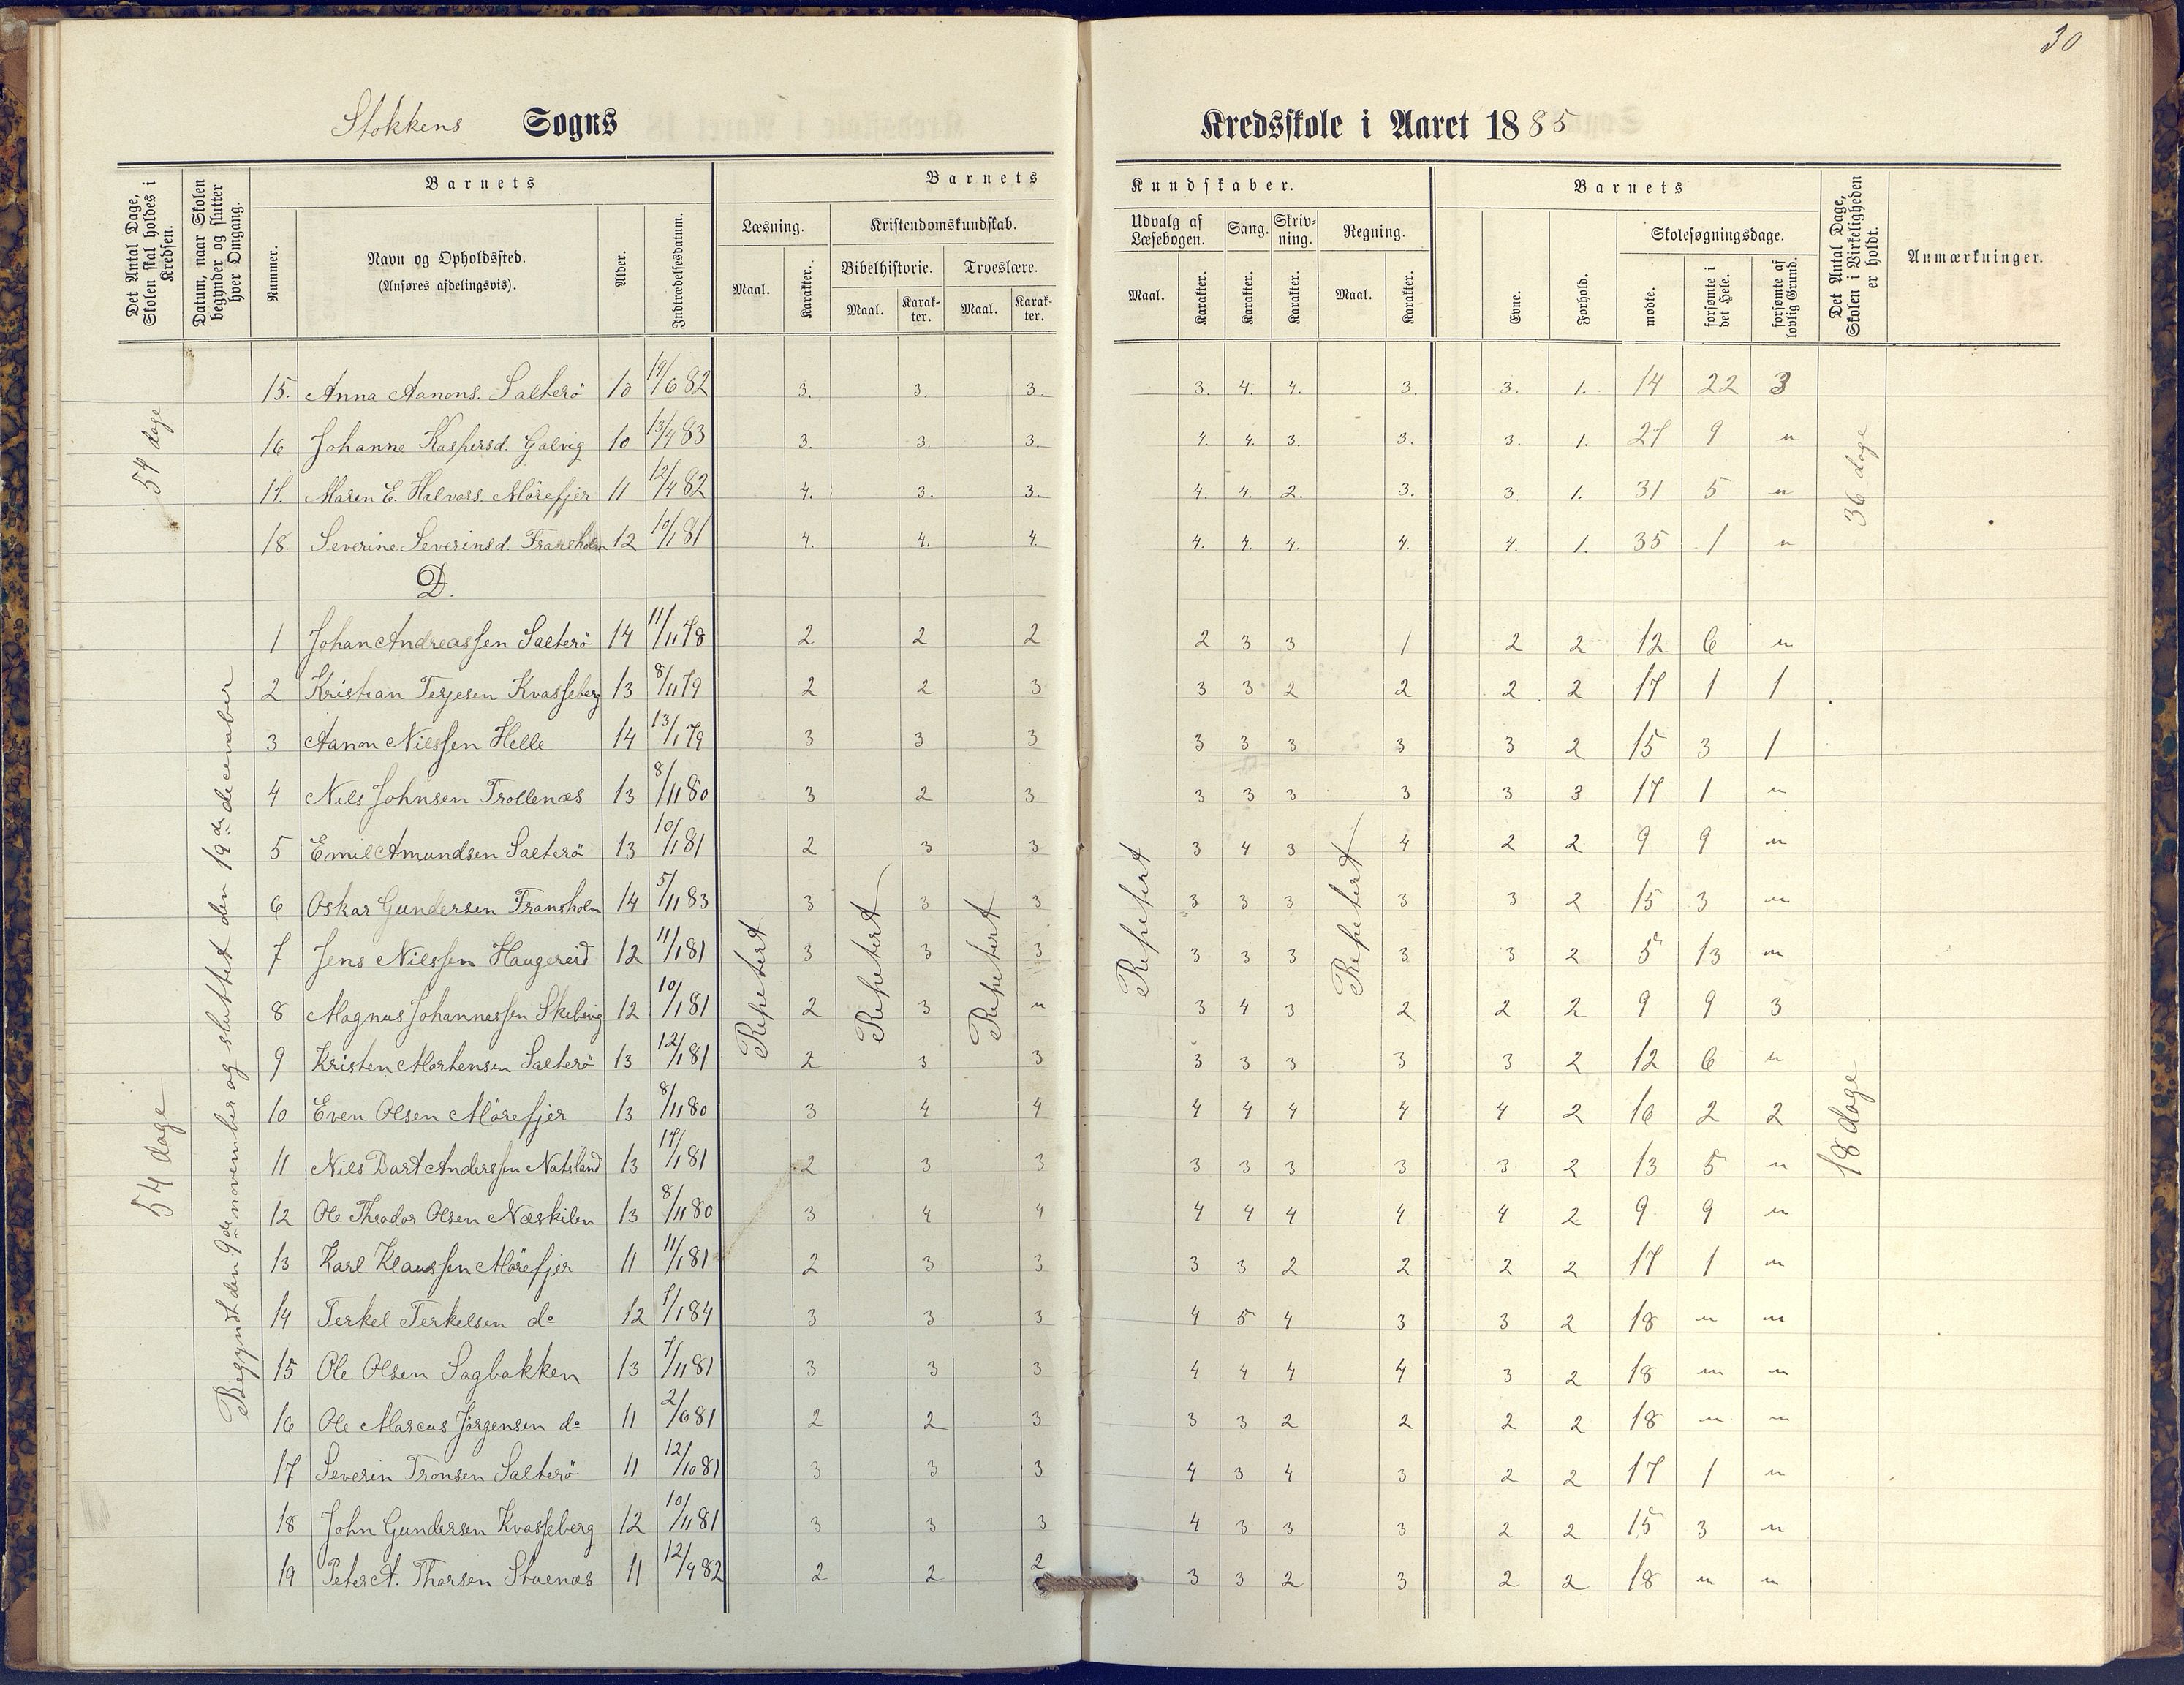 30
Stokkens Sogns Kredsskole i Aaret 1885
Det Antal Dage, Skolen skal holdes i Kredsen.
Datum, naar Skolen begynder og slutter hver Omgang.
Barnets
Nummer.
Navn og Opholdssted.
(Anføres afdelingsvis).
Alder.
Indtrædelsesdatum.
Barnets Kundskaber.
Læsning.
Maal. Karakter.
Kristendomskundskab.
Bibelhistorie. Troeslære.
Maal. Karakter. Maal. Karakter.
Udvalg af Læsebogen.
Maal. Karakter.
Sang. Karakter.
Skrivning. Karakter.
Regning.
Maal. Karakter.
Barnets
Evne. Forhold.
Skolesøgningsdage.
mødte. forsømte i det Hele. forsømte af lovlig Grund.
Det Antal Dage, Skolen i Virkeligheden er holdt.
Anmærkninger.
54 dage
36 dage
15. Anna Aanons. Salterö 10 19/6 82 3. 3. 3. 3. 4. 4. 3. 3. 1. 14 22 3
16 Johanne Kaspersd. Galvig 10 13/4 83 3. 3. 3. 4. 4. 3. 3. 3. 1. 27 9 "
17. Maren E. Halvors. Mörefjer 11 12/4 82 4. 3. 3. 4. 4. 2. 3. 3. 1. 31 5 "
18. Severine Severinsd. Fransholm 12 10/1 81 4. 4. 4. 4. 4. 4. 4. 4. 1. 35 1 "
D.
54 dage
Begyndt den 9de november og sluttet den 19de december
Repetert
Repetert
Repetert
Repetert
Repetert
18 dage
1 Johan Andreassen Salterö 14 11/11 78 2 2 2 2 3 3 1 2 2 12 6 "
2 Kristian Terjesen Kvasseberg 13 8/11 79 2 2 3 3 3 2 2 2 2 17 1 1
3 Aanon Nilssen Helle 14 13/1 79 3 3 3 3 3 3 3 3 2 15 3 1
4 Nils Johnsen Trollenæs 13 8/11 80 3 2 3 3 3 3 3 3 3 17 1 "
5 Emil Amundsen Salterö 13 10/1 81 2 3 3 3 4 3 4 2 2 9 9 "
6 Oskar Gundersen Fransholm 14 5/11 83 3 3 3 3 3 3 3 3 2 15 3 "
7 Jens Nilssen Haugereid 12 11/1 81 3 3 3 3 3 3 3 3 2 5 13 "
8 Magnus Johannessen Skibvig 12 10/1 81 2 3 " 3 4 3 2 2 2 9 9 3
9 Kristen Mortensen Salterö 13 12/1 81 2 3 3 3 3 3 3 3 2 12 6 "
10 Even Olsen Mörefjer 13 8/11 80 3 4 4 4 4 4 4 4 2 16 2 2
11 Nils Bart Anderssen Natsland 13 17/1 81 2 3 3 3 3 3 3 3 2 13 5 "
12 Ole Theodor Olsen Næskilen 13 8/11 80 3 4 4 4 4 4 4 4 2 9 9 "
13 Karl Klaussen Mörefjer 11 11/1 81 2 3 3 3 3 2 2 2 2 17 1 "
14 Terkel Terkelsen do 12 7/1 84 3 3 3 4 5 4 3 3 2 18 " "
15 Ole Olsen Sagbakken 13 7/11 81 3 3 3 4 4 4 4 3 2 18 " "
16 Ole Marcus Jörgensen do 11 2/6 81 2 2 3 3 3 2 2 2 2 18 " "
17 Severin Tronsen Salterö 11 12/10 81 3 3 3 4 3 4 3 2 2 17 1 "
18 John Gundersen Kvasseberg 12 10/11 81 3 3 3 4 3 3 3 2 2 15 3 "
19 Peter A. Thorsen Stuenæs 11 12/4 82 2 2 2 3 3 2 3 2 2 18 " "